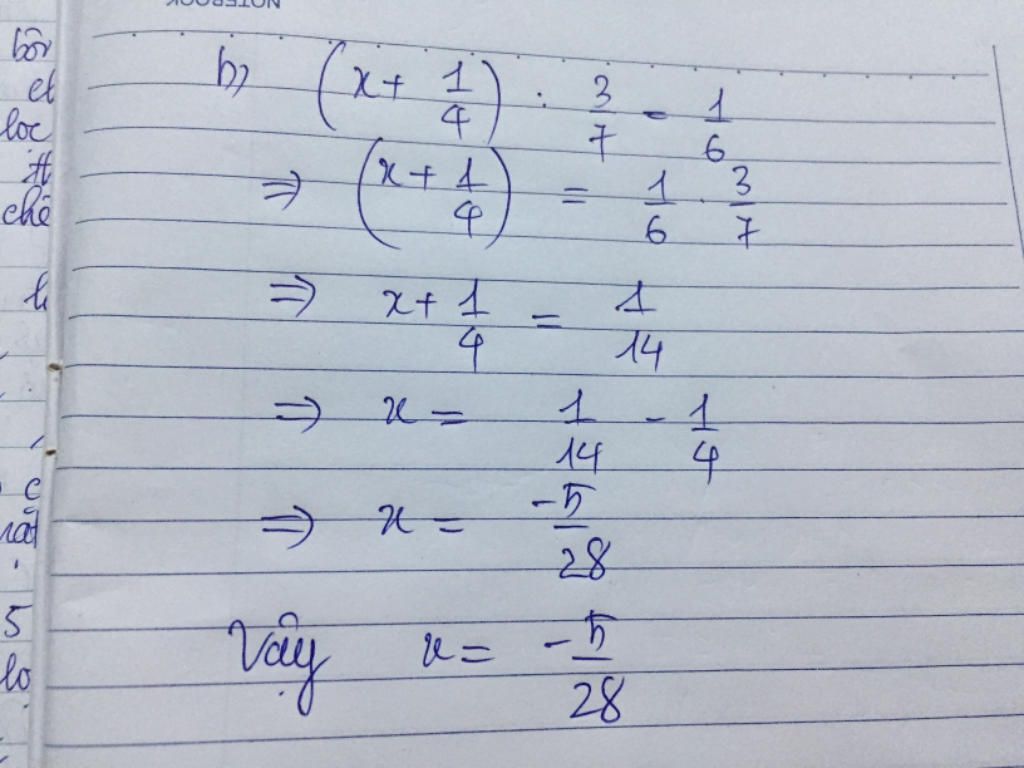 NOTEBOOK
b) (x + 1/4) : 3/7 = 1/6
⇒ (x + 1/4) = 1/6 . 3/7
⇒ x + 1/4 = 1/14
⇒ x = 1/14 - 1/4
⇒ x = -5/28
Vậy x = -5/28